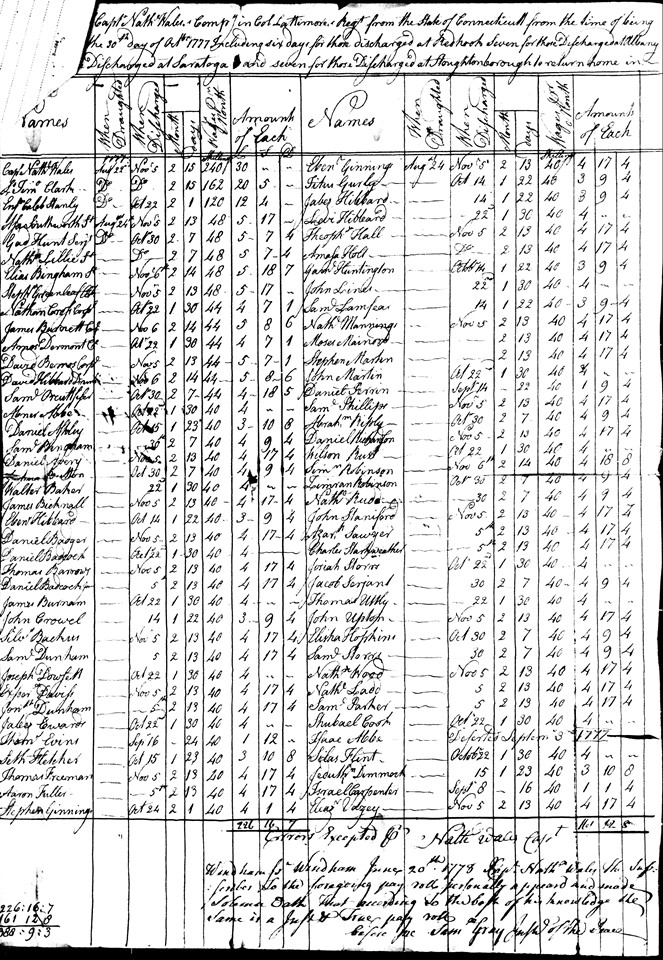 Capt Nathll Wales, Comp in Col Lattimore, Regt from the State of Connecticutt from the time of being
the 30th day of Octr 1777 Including six days for those discharged at Redhook Seven for those Discharged at Albany
Discharged at Saratoga and seven for those Discharged at Stoughtonborough to return home in
Names When Draughted When Discharged Month days Wages Pr Month Amount of Each Names When Draughted When Discharged Month days Wages per Month Amount of Each
1777
Capt Nathll Wales Augt 22 Novr 5 2 15 240 30 - - Ebenr Ginning Augt 24 Novr 5 2 13 40 4 17 4
Lt Jonn Clark Do Do 2 15 162 20 5 - Titus Gurley Oct 14 1 22 40 3 9 4
Ens Caleb Hanly Do Oct 22 2 1 120 12 4 - Jabez Hibbard 14 1 22 40 3 9 4
Augt 24 Novr 5 2 13 48 5 17 - Levi Hibbard 22 1 30 40 4 - -
Gad Hunt Serj Do Oct 30 2 7 48 5 7 4 Theoph Hall Novr 5 2 13 40 4 17 4
Nathn Lillie St Do 2 7 48 5 7 4 Amasa Holt Do 2 13 40 4 17 4
Elias Bingham St Novr 6 2 14 48 5 18 7 Gabr Huntington Octobr 14 1 22 40 3 9 4
Novr 5 2 13 48 5 17 - John Lines 22 1 30 40 4 -
Nathan Cross Corp Oct 22 1 30 44 4 7 1 Saml 14 1 22 40 3 9 4
James Burnett Cor Nov 6 2 14 44 5 8 6 Nathn Manneng Nov 5 2 13 40 4 17 4
Amos Dormont C Oct 22 1 30 44 4 7 1 Moses Mainord 2 13 40 4 17 4
David Bemos Corp Nov 5 2 13 44 5 7 1 Stephen Martin 2 13 40 4 17 4
David Hibbard Nov 6 2 14 44 5 8 6 John Martin Oct 22 1 30 40 4 - -
Saml Oct 30 2 7 44 4 18 5 Daniel Perrin Sept 14 22 40 1 9 4
Abner Abbe Oct 22 1 30 40 4 - - Saml Phillips Nov 5 2 13 40 4 17 4
Daniel Ashley Oct 15 1 23 40 3 10 8 Riply Oct 30 2 7 40 4 9 4
Saml Bingham 30 2 7 40 4 9 4 Daniel Richardson Nov 5 2 13 40 4 17 4
Daniel Avery Nov 5 2 13 40 4 17 4 Wilson Rust Oct 22 1 30 40 4 - -
Oct 30 2 7 40 4 9 4 Simn Robinson Nov 6 2 14 40 4 18 8
Walter Baker 22 1 30 40 4 - - Robinson Oct 30 2 7 40 4 9 4
James Bicknall Nov 5 2 13 40 4 17 4 Nathl Rudd 30 2 7 40 4 9 4
Eben Hibbard Oct 14 1 22 40 3 9 4 John Staniford Nov 5 2 13 40 4 17 4
Daniel Badger Nov 5 2 13 40 4 17 4 Azar Sawyer 5 2 13 40 4 17 4
Daniel Badcock Oct 22 1 30 40 4 - Charles Starkweather 5 2 13 40 4 17 4
Thomas Barrows Nov 5 2 13 40 4 17 4 Josiah Storrs Oct 22 1 30 40 4 - -
Daniel Badcock Jr 5 2 13 40 4 17 4 Jacob Serjant 30 2 7 40 4 9 4
James Burnam Oct 22 1 30 40 4 - - Thomas Utly 22 1 30 40 4 - -
John Crowel 14 1 22 40 3 9 4 John Upton Nov 5 2 13 40 4 17 4
Backus Nov 5 2 13 40 4 17 4 Elisha Hopkins Oct 30 2 7 40 4 9 4
Saml Dunham 5 2 13 40 4 17 4 Saml Storrs 30 2 7 40 4 9 4
Joseph Dowsett Oct 22 1 30 40 4 - Nathn Wood Nov 5 2 13 40 4 17 4
Exper Daviss Nov 5 2 13 40 4 17 4 Nathl Ladd 5 2 13 40 4 17 4
Jonn Dunham 5 2 13 40 4 17 4 Saml Parker 5 2 13 40 4 17 4
Jabez Ewards Oct 22 1 30 40 4 - - Shubael Cook Oct 22 1 30 40 4 - -
Evins Sep 16 - 24 40 1 12 - Isaac Abbe Deserted Septem 3d 1777
Seth Fletcher Oct 15 1 23 40 3 10 8 Silas Flint October 22 1 30 40 4 - -
Thomas Freeman Nov 5 2 13 40 4 17 4 Dimmock 15 1 23 40 3 10 8
Aaron Fuller 5 2 13 40 4 17 4 Israel Carpenter Sept 8 16 40 1 4
Stephen Ginning Oct 24 2 1 40 4 1 4 Elias Nov 5 2 13 40 4 17 4
226 16 7 161 12 8
Errors Excepted Pr Nathll Wales Capt
Windham ss Windham June 20th 1778 Capt Nathll Wales the
to the foregoing pay roll personally appeard and made
Solemn Oath that according to the best of his knowledge the
Same is a Just & True pay roll
Before me Saml Gray Just of the Peace
226:16:7
161 12 8
388:9:3